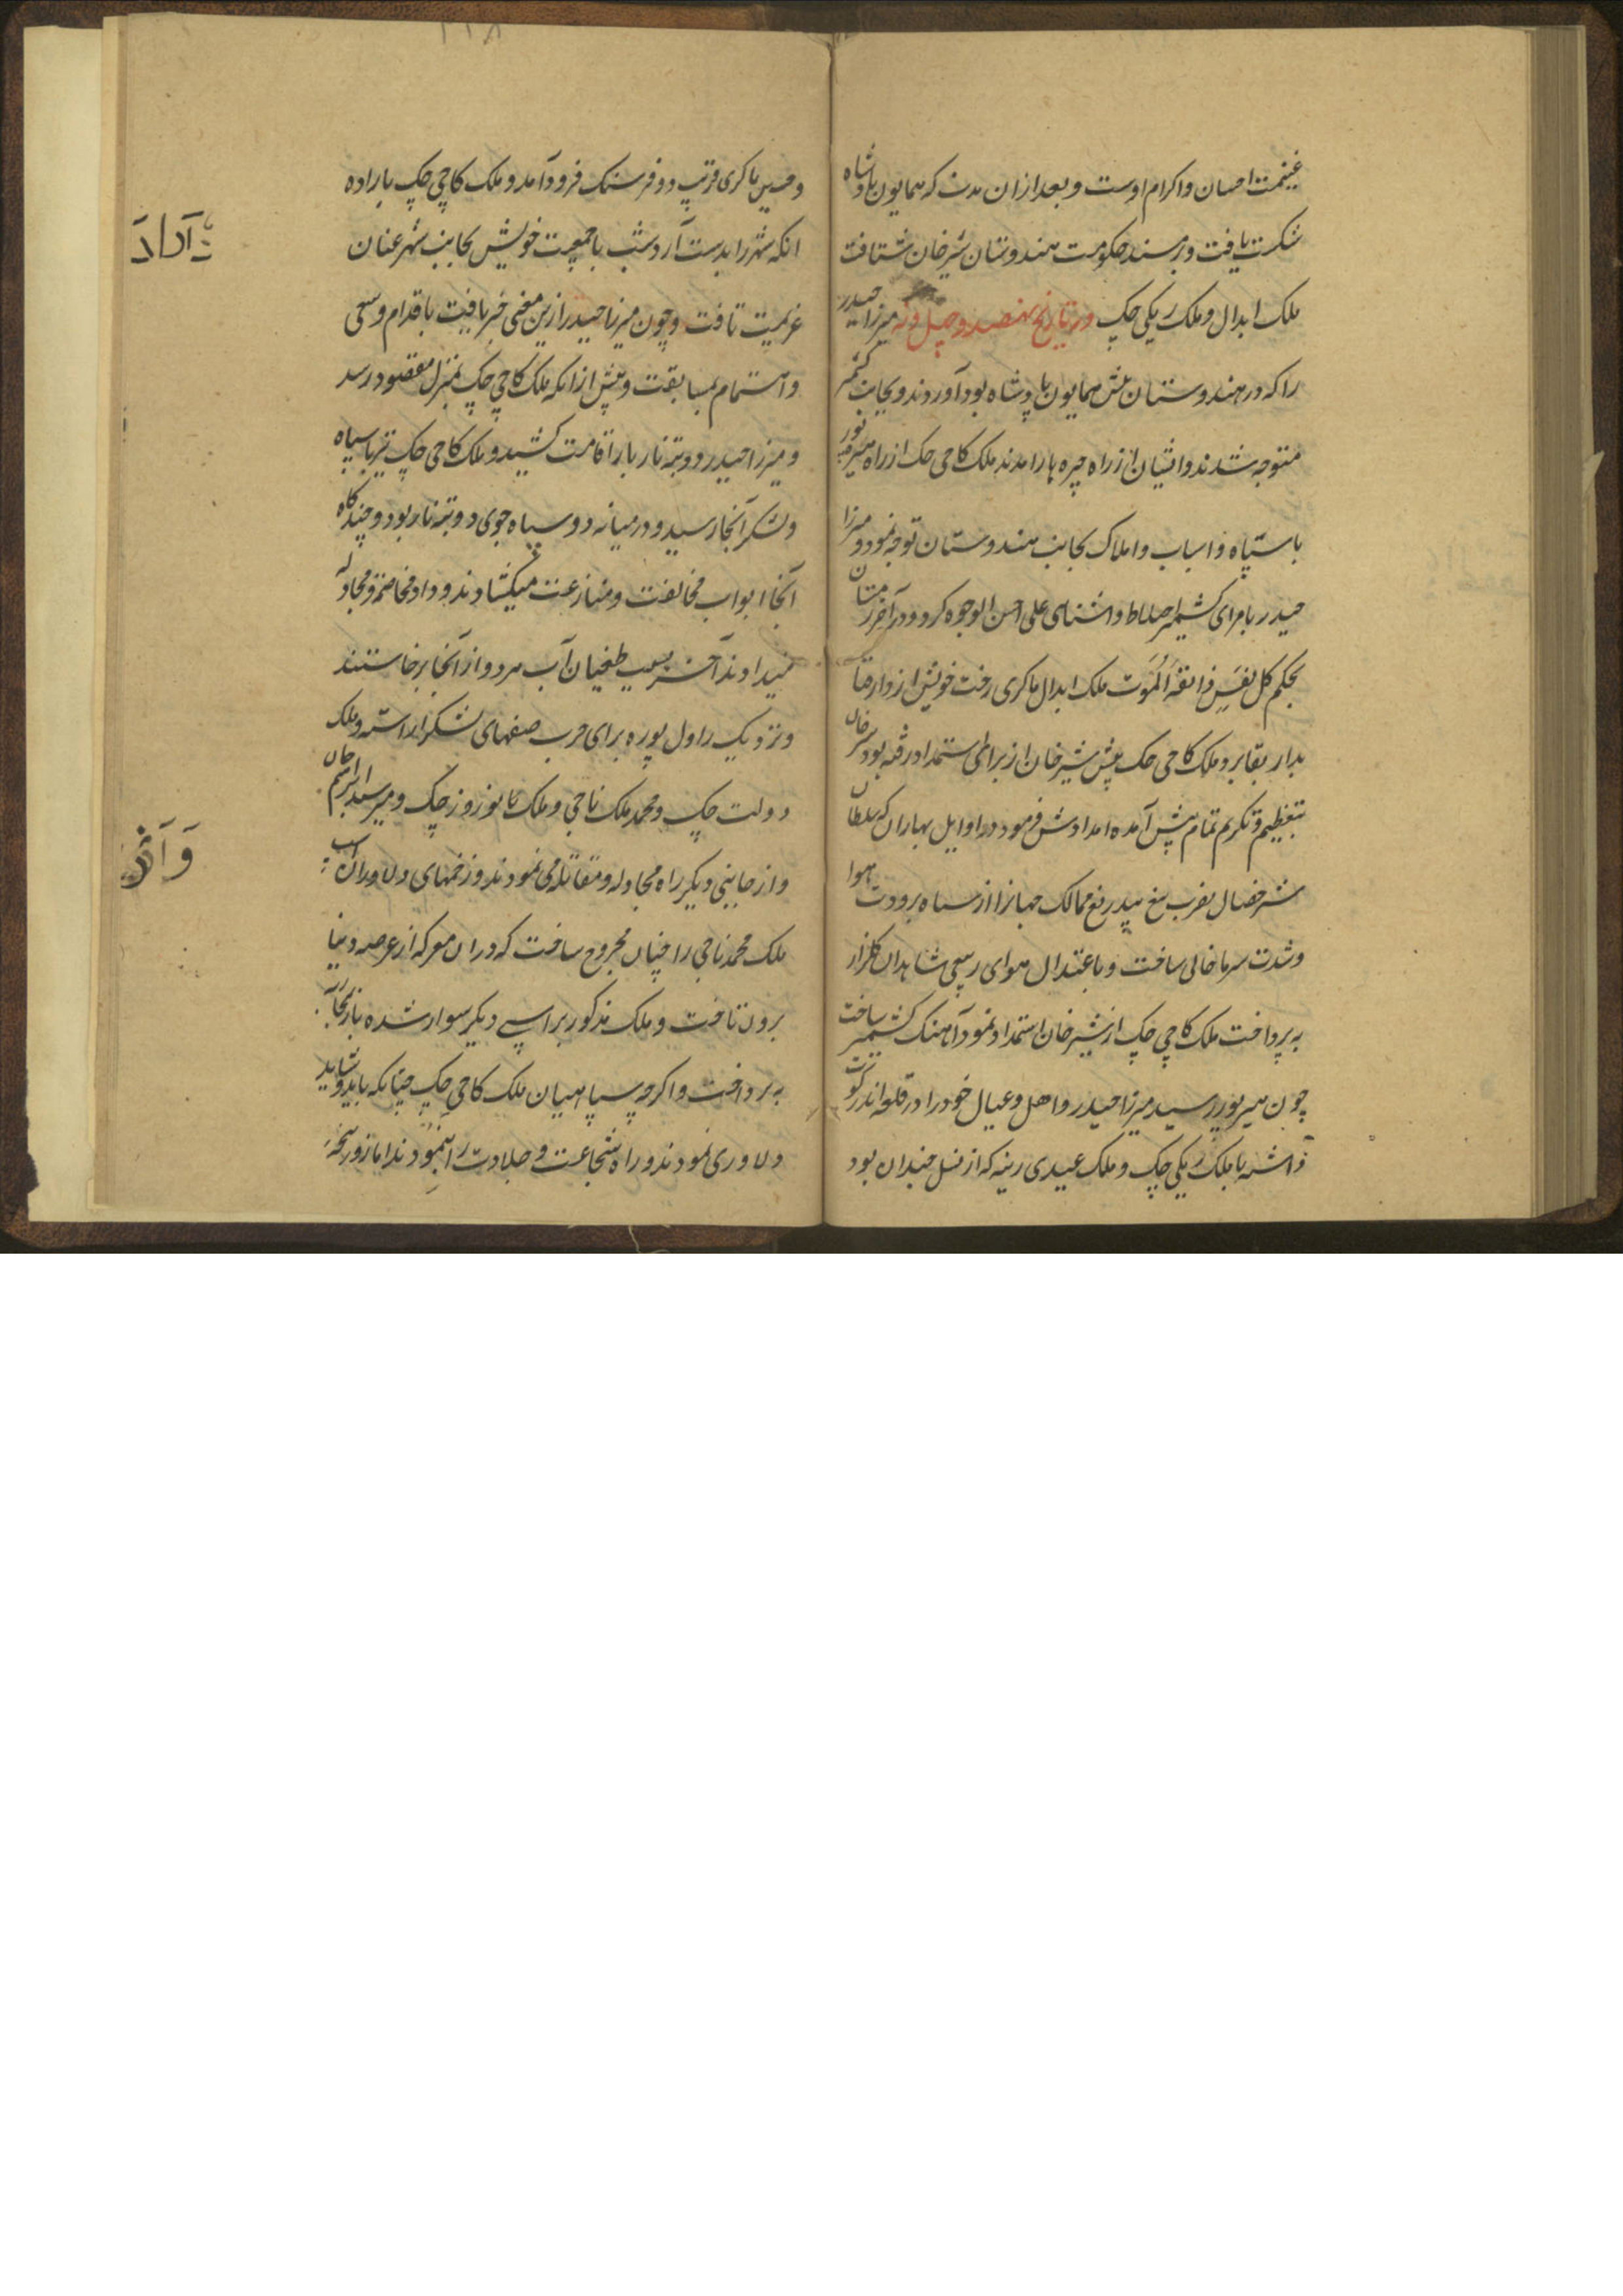 غنیمت احسان و اکرام اوست و بعد ازان مدت که همایون پادشاه
شکست یافت و بر مسند حکومت هندوستان شیرخان شتافت
ملک ابدال و ملک ریکی چک در تاریخ نهصد و چهل و نه میرزا حیدر
را که در هندوستان پیش همایون پادشاه بود آوردند و بجانب کشمیر
متوجه شدند و ایشان از راه چیره هار آمدند ملک کاجی چک از راه هیرپور
با سپاه و اسباب و املاک بجانب هندوستان توجه نمود و میرزا
حیدر بامرای کشمیر اختلاط و آشنای علی احسن الوجوه کرد و در آخر زمستان
بحکم کل نفس ذائقة الموت ملک ابدال ماکری رخت خویش از دار فنا
بدار بقا برد و ملک کاجی چک پیش شیرخان از برای استمداد رفته بود شیرخان
بتعظیم و تکریم تمام پیش آمده امدادش فرمود در اوایل بهاران که سلطان
ممالک جهانرا از سپاه برودت هوا
و شدت سرما خالی ساخت و باعتدال هوای ربیعی شاهدان گلزار
به پرداخت ملک کاجی چک از شیرخان استمداد نمود آهنک کشمیر ساخت
چون بهیرپور رسید میرزا حیدر و اهل و عیال خود را در قلعه اندرکوت
داشته با ملک ریکی چک و ملک عیدی رینه که از نسل چندان بود
و حسین ماکری قریب دو فرسنک فرود آمد و ملک کاجی چک باراده
انکه شهر را بدست آرد شب با جمعیت خویش بجانب شهر عنان
عزیمت تافت و چون میرزا حیدر ازین معنی خبر یافت باقدام و سعی
و اهتمام بمسابقت و پیش ازانکه ملک کاجی چک بمنزل مقصود رسد
و میرزا حیدر بار اقامت کشید و ملک کاجی چک نیز با سپاه
و لشکر آنجا رسید و در میانه دو سپاه جوی بود و چند گاه
آنجا ابواب مخالفت و منازعت میکشادند و داد مخاصمة و مجادله
میدادند آخر بسبب طغیان آب هر دو از آنجا برخاستند
و نزدیک راول پوره برای حرب صفهای لشکر آراسته و ملک
دولت چک و محمد ملک ناجی و ملک نوروز چک و میر سید ابراهیم خان
و از جانبی دیکر راه مجادله و مقاتله می نمودند و زخمهای دلاوران
ملک محمد ناجی را چنان مجروح ساخت که دران معرکه از عرصه دنیا
برون تافت و ملک مذکور بر اسپی دیکر سوار شده باز بمحاربه
به پرداخت و اکرچه سپاهیان ملک کاجی چک چنانکه باید و شاید
دلاوری نمودند و راه شجاعت و جلادت را نمودند اما